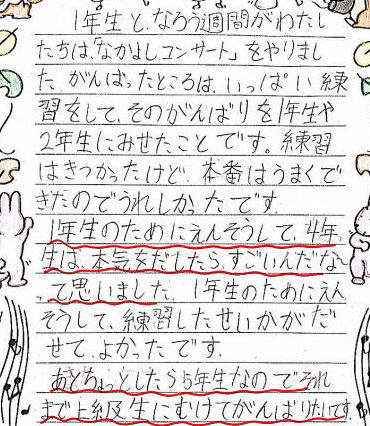 1年生と、なろう週間がわたし
たちは、「なかよしコンサート」をやりまし
た。がんばったところは、いっぱい練
習をして、そのがんばりを1年生や
2年生にみせたことです。練習
はきつかったけど、本番はうまくで
きたのでうれしかったです。
1年生のためにえんそうして、4年
生は、本気をだしたらすごいんだな～
って思いました。1年生のためにえん
そうして、練習したせいかがだ
せて、よかったです。
あとちょっとしたら5年生なのでそれ
まで上級生にむけてがんばりたいです。